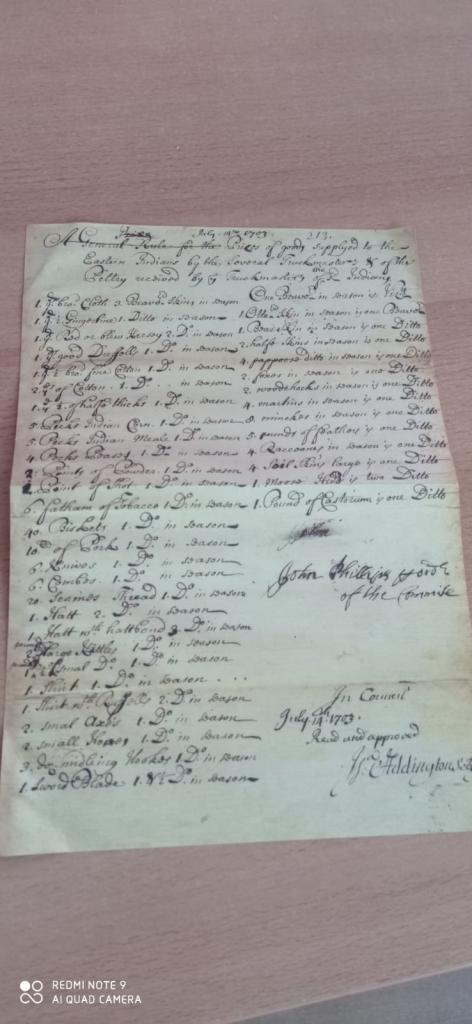 July 14th 1703 213.
A General Rule for the Prices of goods Supplyed to the
Eastern Indians by the Several Truckmasters & of the
Peltry received by ye Truckmasters of ye Indians
1. yd broad Cloth 3 Beaver Skins in season
1. yd & Gingerline 1. Ditto in season
1. yd Red or blew Kersey 2. Do in season
1. yd good Duffells 1. Do in season
1. yd broad fine Cotton 1. Do in season
2. yd of Cotton . 1. D . . . in season
1. yd & of halfe thicks 1. Do in season
5. Pecks Indian Corn . 1. Do in season
5. Pecks Indian Meale 1. Do in season
4. Pecks Pease 1. Do in season
2. Pints of Powder 1. Do in season
1. Pint of Shot 1. Do in season
6. fatham of Tobacco 1. Do in season
40. Biskets 1. Do in season
10 of Pork 1. Do in season
6. Knives 1. Do in season
6. Combes 1. Do in season
20. Scaines Thread 1. Do in season
1. Hatt 2. Do in season
1. Hatt wth hattband 3. Do in season
2. large Kettles 1. Do in season
1. small Do 1. Do in season
1. Shirt 1. Do in season . . .
1. Shirt wth Ruffells 2. Do in season
2. small Axes 1. Do in season
2. small Howes 1. Do in season
3. do midling Hookes 1. Do in season
1. Sword Blade 1. & ½ Do in season
One Beaver in season is Vizt
1. Otter Skin in season is one Beaver
1. Bearskin in season is one Ditto
2. halfe skins in season is one Ditto
4. pappoose ditto in season is one Ditto
2. foxes in season is one Ditto
2. woodchocks in season is one Ditto
4. martins in season is one Ditto
8. minckes in season is one Ditto
5. pounds of feathers is one Ditto
4. Raccoones in season is one Ditto
4. Seil Skins large is one Ditto
1. Moose Hide is two Ditto
1. Pound of Castorium is one Ditto
John
John Phillips
of the
In Council
July 14th 1703.
Read and approved
Addington
REDMI NOTE 9
AI QUAD CAMERA